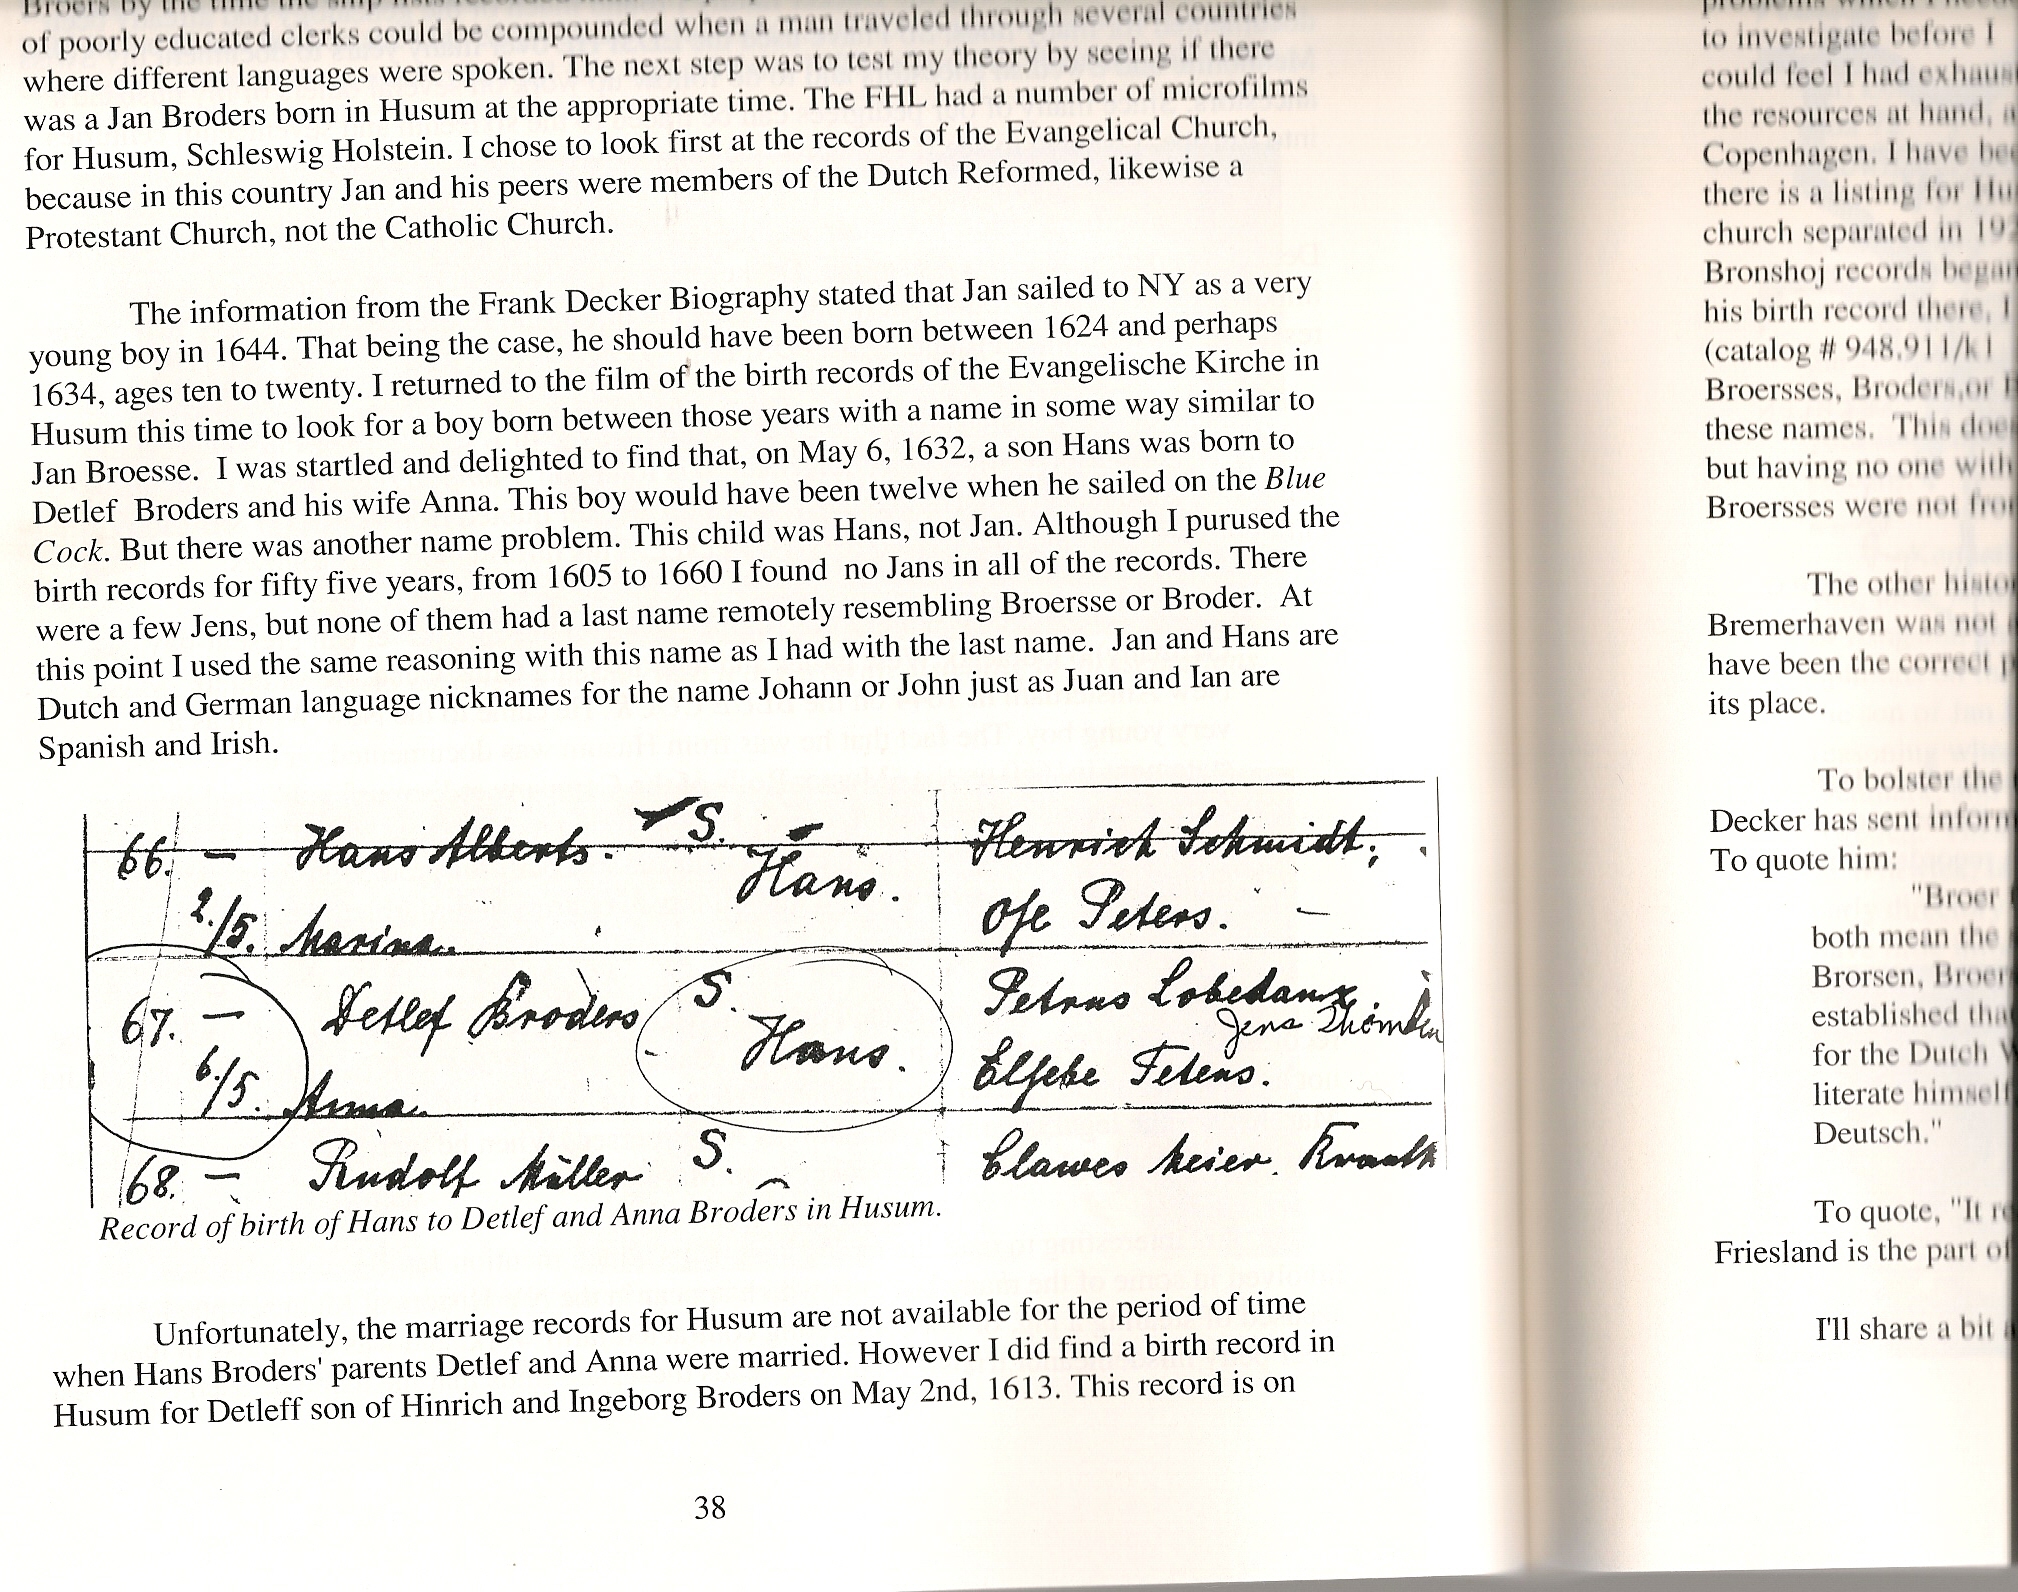 Broers by the time the ship lists recorded
of poorly educated clerks could be compounded when a man traveled through several countries
where different languages were spoken. The next step was to test my theory by seeing if there
was a Jan Broders born in Husum at the appropriate time. The FHL had a number of microfilms
for Husum, Schleswig Holstein. I chose to look first at the records of the Evangelical Church,
because in this country Jan and his peers were members of the Dutch Reformed, likewise a
Protestant Church, not the Catholic Church.
The information from the Frank Decker Biography stated that Jan sailed to NY as a very
young boy in 1644. That being the case, he should have been born between 1624 and perhaps
1634, ages ten to twenty. I returned to the film of the birth records of the Evangelische Kirche in
Husum this time to look for a boy born between those years with a name in some way similar to
Jan Broesse. I was startled and delighted to find that, on May 6, 1632, a son Hans was born to
Detlef Broders and his wife Anna. This boy would have been twelve when he sailed on the Blue
Cock. But there was another name problem. This child was Hans, not Jan. Although I purused the
birth records for fifty five years, from 1605 to 1660 I found no Jans in all of the records. There
were a few Jens, but none of them had a last name remotely resembling Broersse or Broder. At
this point I used the same reasoning with this name as I had with the last name. Jan and Hans are
Dutch and German language nicknames for the name Johann or John just as Juan and Ian are
Spanish and Irish.
66. — Hans Alberts. S. Henrich Schmidt,
Hans.
2./5. Marina. Ose Peters. —
67. — Detlef Broders S. Petrus Lobedanx.
Jens
Hans.
6./5. Anna. Elsebe Fetens.
68. — Rudolf Müller S. Clawes Meier.
Record of birth of Hans to Detlef and Anna Broders in Husum.
Unfortunately, the marriage records for Husum are not available for the period of time
when Hans Broders' parents Detlef and Anna were married. However I did find a birth record in
Husum for Detleff son of Hinrich and Ingeborg Broders on May 2nd, 1613. This record is on
38
to investigate before I
could feel I had
the resources at hand,
Copenhagen. I have
there is a listing for
church separated in
Bronshoj records
his birth record there, I
(catalog # 948.911/k1
Broersses, Broders,or
these names. This
but having no one with
Broersses were not
The other
Bremerhaven was not
have been the correct
its place.
To bolster the
Decker has sent
To quote him:
"Broer
both mean the
Brorsen,
established
for the Dutch
literate
Deutsch."
To quote, "It
Friesland is the part
I'll share a bit